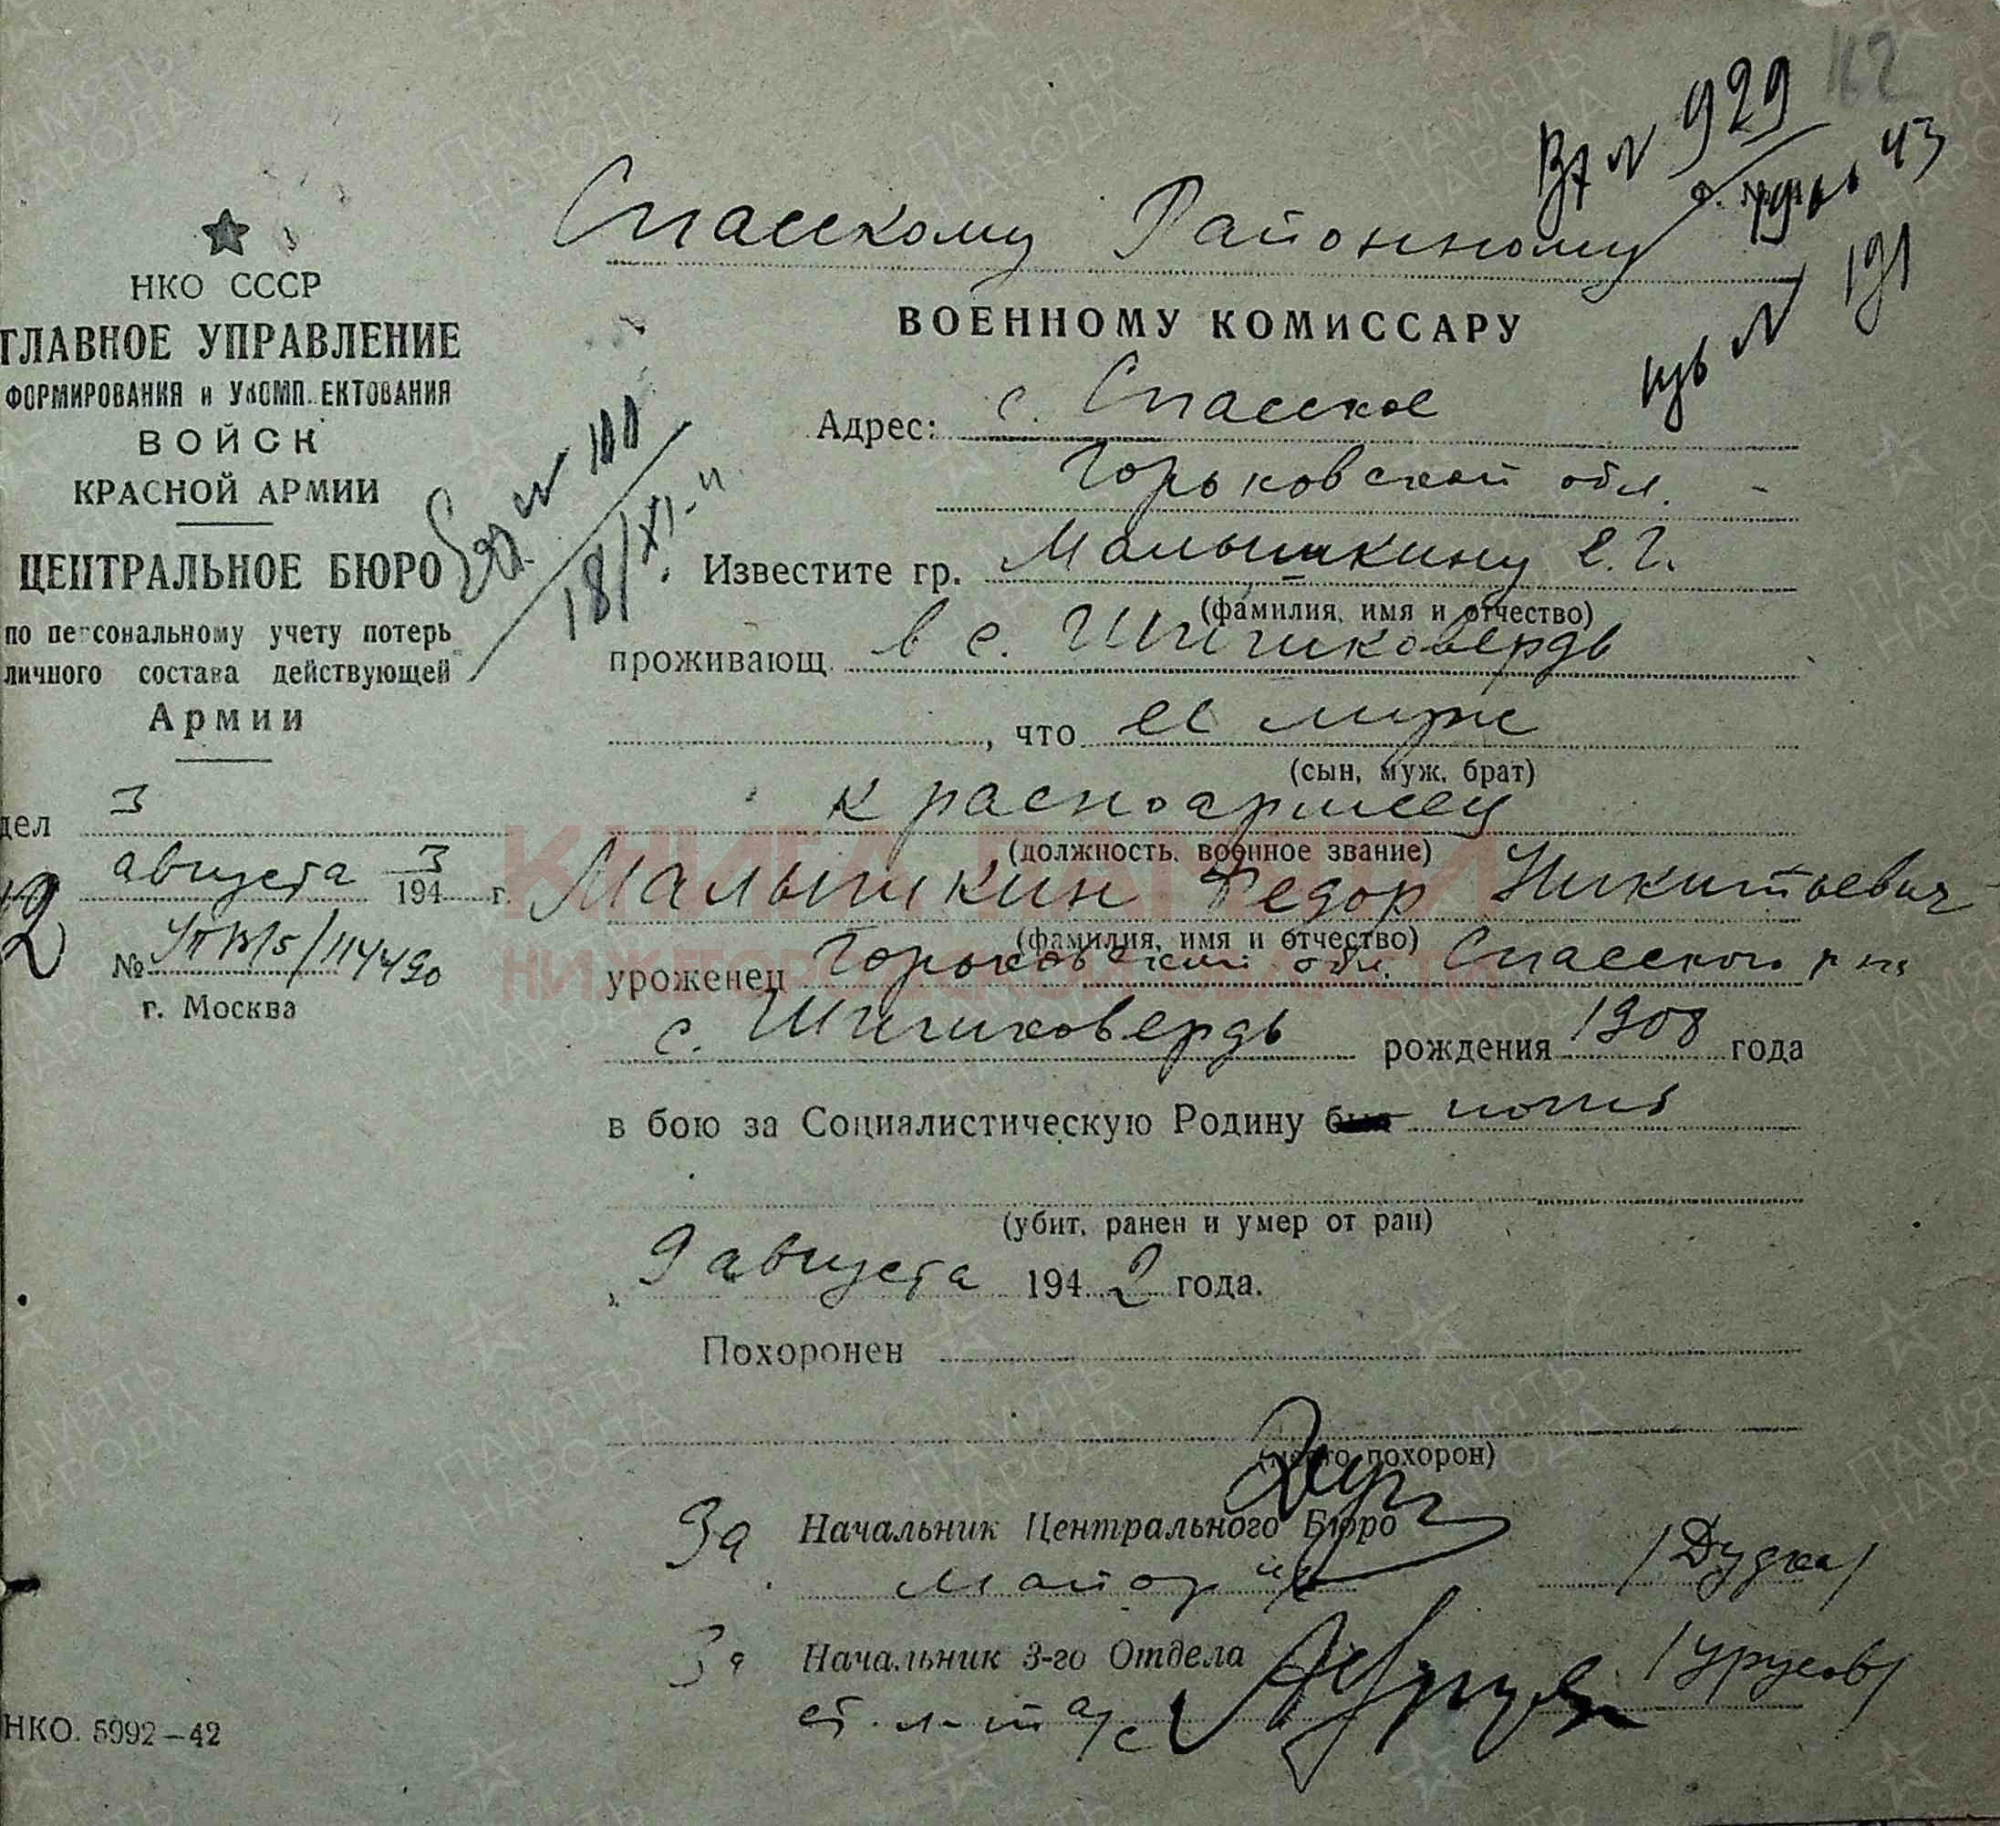 162
Вх № 929
43
изв № 191
НКО СССР
ГЛАВНОЕ УПРАВЛЕНИЕ
ФОРМИРОВАНИЯ и УКОМПЛЕКТОВАНИЯ
ВОЙСК
КРАСНОЙ АРМИИ
ЦЕНТРАЛЬНОЕ БЮРО
по персональному учету потерь
личного состава действующей
Армии
дел 3
августа 1943 г.
№
г. Москва
№ 100
18/XI-
Спасскому Районному
ВОЕННОМУ КОМИССАРУ
Адрес: с. Спасское
Горьковской обл.
Известите гр. Малышкину Е.Г.
(фамилия, имя и отчество)
проживающ. в с. Шишковердь
, что ее муж
(сын, муж, брат)
красноармеец
(должность, военное звание)
Малышкин Федор Никитьевич
(фамилия, имя и отчество)
уроженец Горьковской обл. Спасского р-на
с. Шишковердь рождения 1908 года
в бою за Социалистическую Родину был погиб
(убит, ранен и умер от ран)
9 августа 1942 года.
Похоронен
(место похорон)
За Начальник Центрального Бюро
майор и/с /Дудка/
За Начальник 3-го Отдела
ст. л-т а/с /Урусов/
НКО. 5992–42
КНИГА ПАМЯТИ
НИЖЕГОРОДСКОЙ ОБЛАСТИ
ПАМЯТЬ НАРОДА